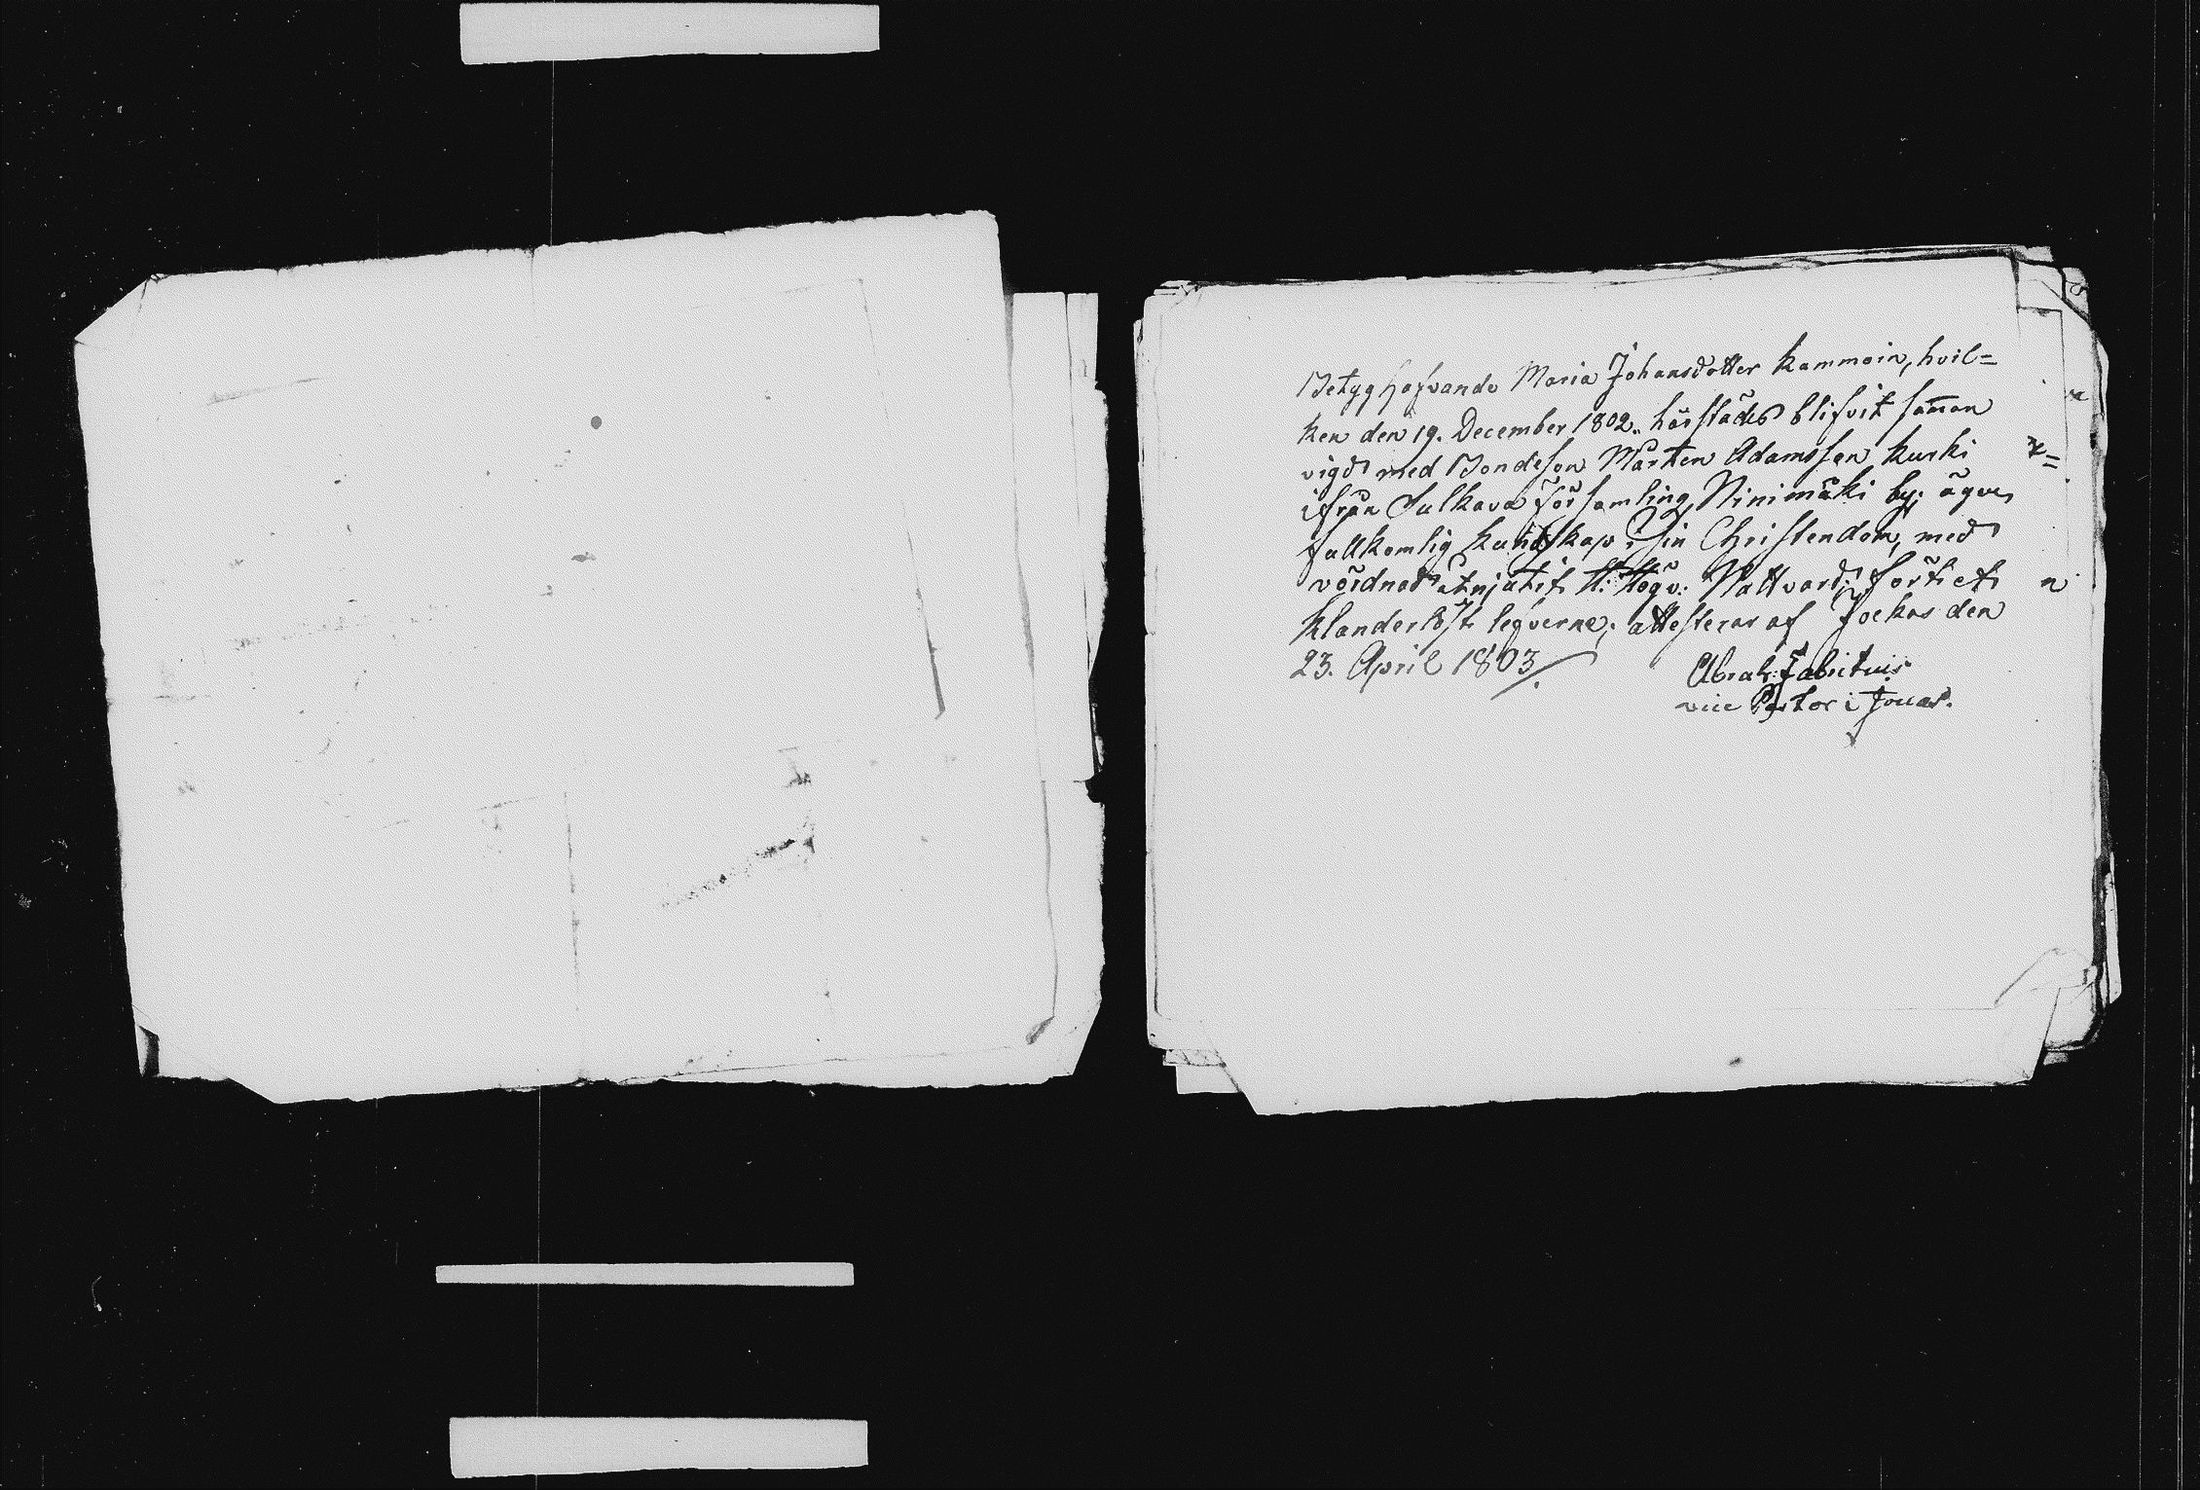 Betyg hafvande Maria Johansdotter Kammoin, hvil=
ken den 19. December 1802. härstädes blifvit samman
vigd med Bondeson Mårten Adamsson Kurki
ifrån Sulkava Församling, Ninimäki by; äger
fullkomlig kundskap i sin Christendom, med
vördnad åtnjutit H: Högv: Nattvard; fört et
klanderlöst lefverne; attesterar af Jockas den
23. April 1803
Abrah: Fabritius
vice Pastor i Jockas.